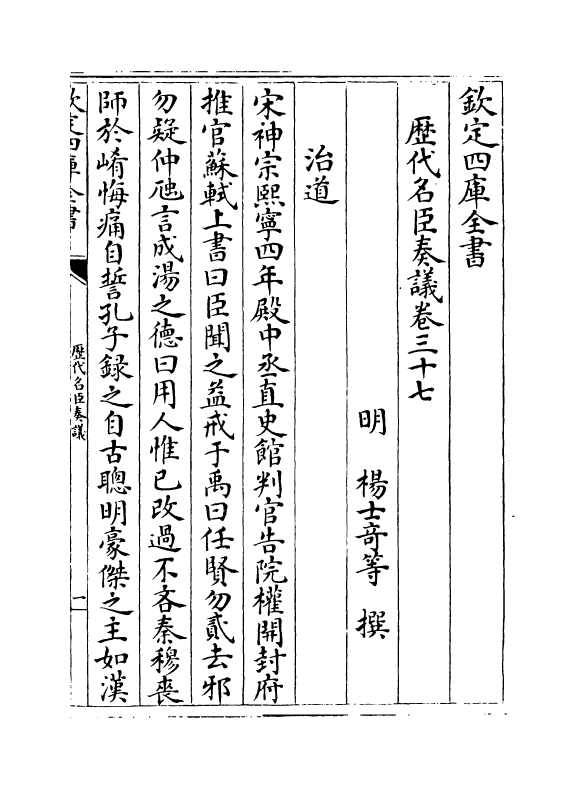 欽定四庫全書
歴代名臣奏議卷三十七
明 楊士竒等 撰
治道
宋神宗熙寧四年殿中丞直史館判官告院權開封府
推官蘇軾上書曰臣聞之益戒于禹曰任賢勿貳去邪
勿疑仲虺言成湯之德曰用人惟已改過不吝秦穆喪
師於崤悔痛自誓孔子録之自古聰明豪傑之主如漢
欽定四庫全書
歴代名臣奏議
一